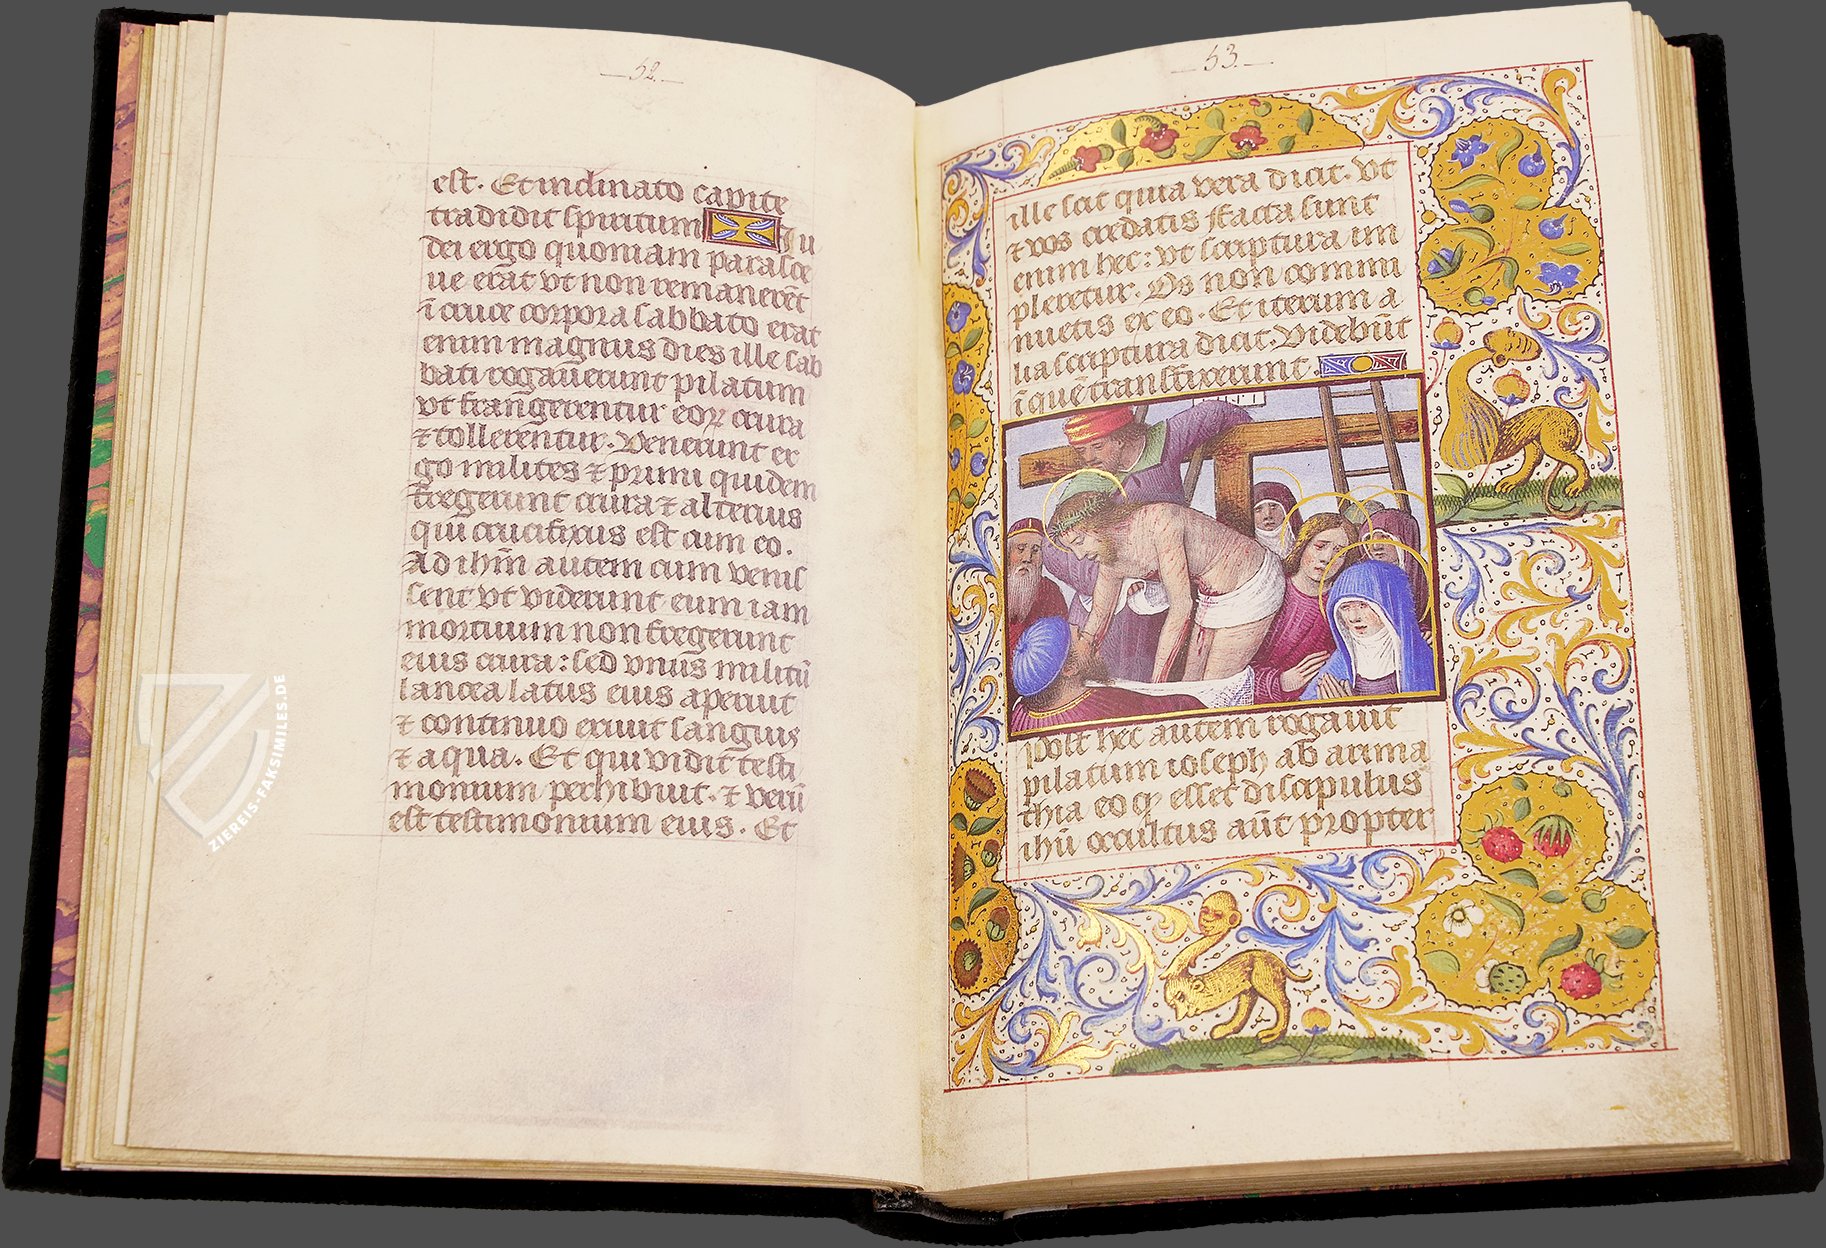 52.
est. Et inclinato capite
tradidit spiritum Iu
dei ergo quoniam parasce
ue erāt vt non remanerēt
ī cruce corpora sabbato erat
enim magnus dies ille sab
bati rogauerunt pilatum
vt frangerentur eoꝝ crura
⁊ tollerentur. Venerunt er
go milites ⁊ primi quidem
fregerunt crura ⁊ alterius
qui crucifixus est cum eo.
Ad ihm̄ autem cum venis
sent vt viderunt eum iam
mortuum non fregerunt
eius crura: sed vnus militū
lancea latus eius aperuit
⁊ continuo exiuit sanguis
⁊ aqua. Et qui vidit testi
monium perhibuit. ⁊ verū
est testimonium eius. Et
53.
ille scit quia vera dicit. Vt
⁊ vos credatis ffacta sunt
enim hec: vt scriptura im
pleretur. Os non commi
nuetis ex eo. Et iterum a
lia scriptura dicit. Videbūt
ī quē transfixerunt.
post hec autem rogauit
pilatum ioseph ab arima
thia eo qꝫ esset discipulus
ihū occultus aūt propter
ZIEREIS-FAKSIMILES.DE